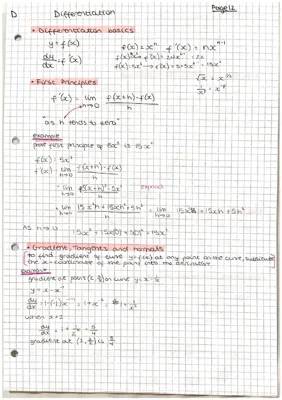 D Differentiation Page 12
• Differentiation basics
y = f(x) f(x) = xⁿ f'(x) = nxⁿ⁻¹
dy/dx = f'(x)
f(x) = 5x³ → f'(x) = 3×5x² = 15x²
√x = x^1/2
• First Principles
f'(x) = lim h→0 f(x+h) - f(x) / h
"as h tends to zero"
example
prove first principle of 5x³ is 15x²
f(x) = 5x³
f'(x) = lim h→0 f(x+h) - f(x) / h
= lim h→0 5(x+h)³ - 5x³ / h expand
= lim h→0 15x²h + 15xh² + 5h³ / h = lim h→0 15x² + 15xh + 5h²
As h→0 15x² + 15x(0) + 5(0)² = 15x²
• Gradient, Tangents and normals
to find gradient of curve y=f(x) at any point on the curve, substitute
the x-coordinate of the point into the derivative
Example
gradient at point on curve y = x - 1/x
y = x - x⁻¹
dy/dx = 1 - (-1)x⁻² = 1 + x⁻² = 1 + 1/x²
when x = 2
dy/dx = 1 + 1/2² = 5/4
gradient at (2, 3/2) is 5/4